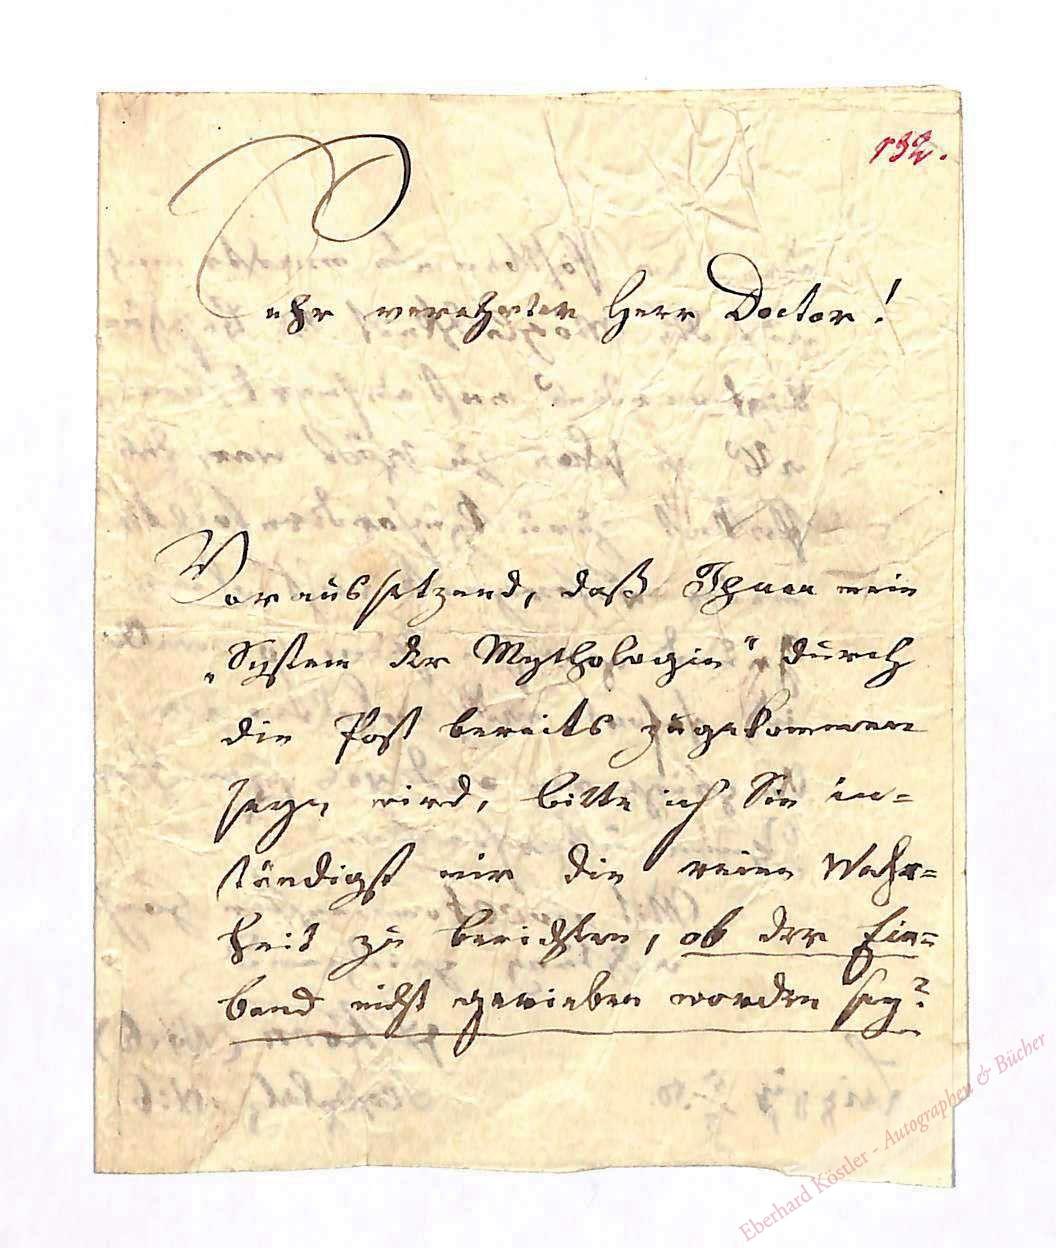 132.
Sehr verehrter Herr Doctor!
Voraussetzend, daß Ihnen mein
„System der Mythologie" durch
die Post bereits zugekommen
seyn wird, bitte ich Sie in=
ständigst mir die reine Wahr=
heit zu berichten, ob der Ein=
band nicht gerieben worden sey?
Eberhard Köstler - Autographen & Bücher